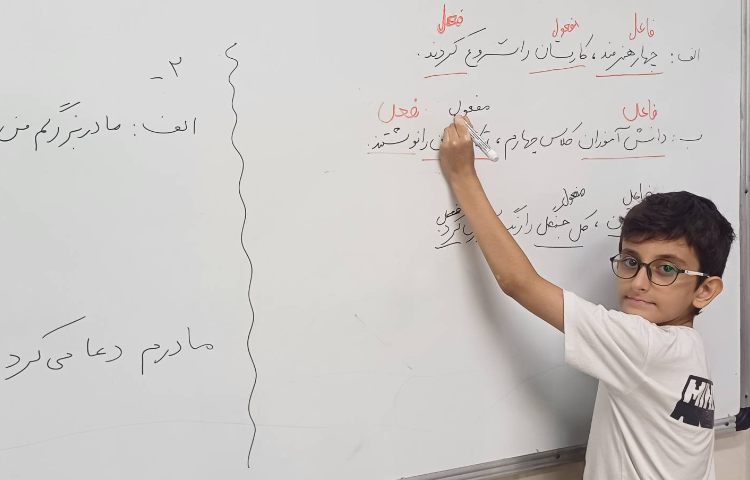 فاعل مفعول فعل
الف: چهار هنرمند، کارستان را شروع کردند.
فاعل مفعول فعل
ب: دانش آموزان کلاس چهارم، را نوشتند.
فاعل مفعول فعل
، کل جنگل را کرد.
۲ـ
الف: مادربزرگم من
مادرم دعا می‌کرد